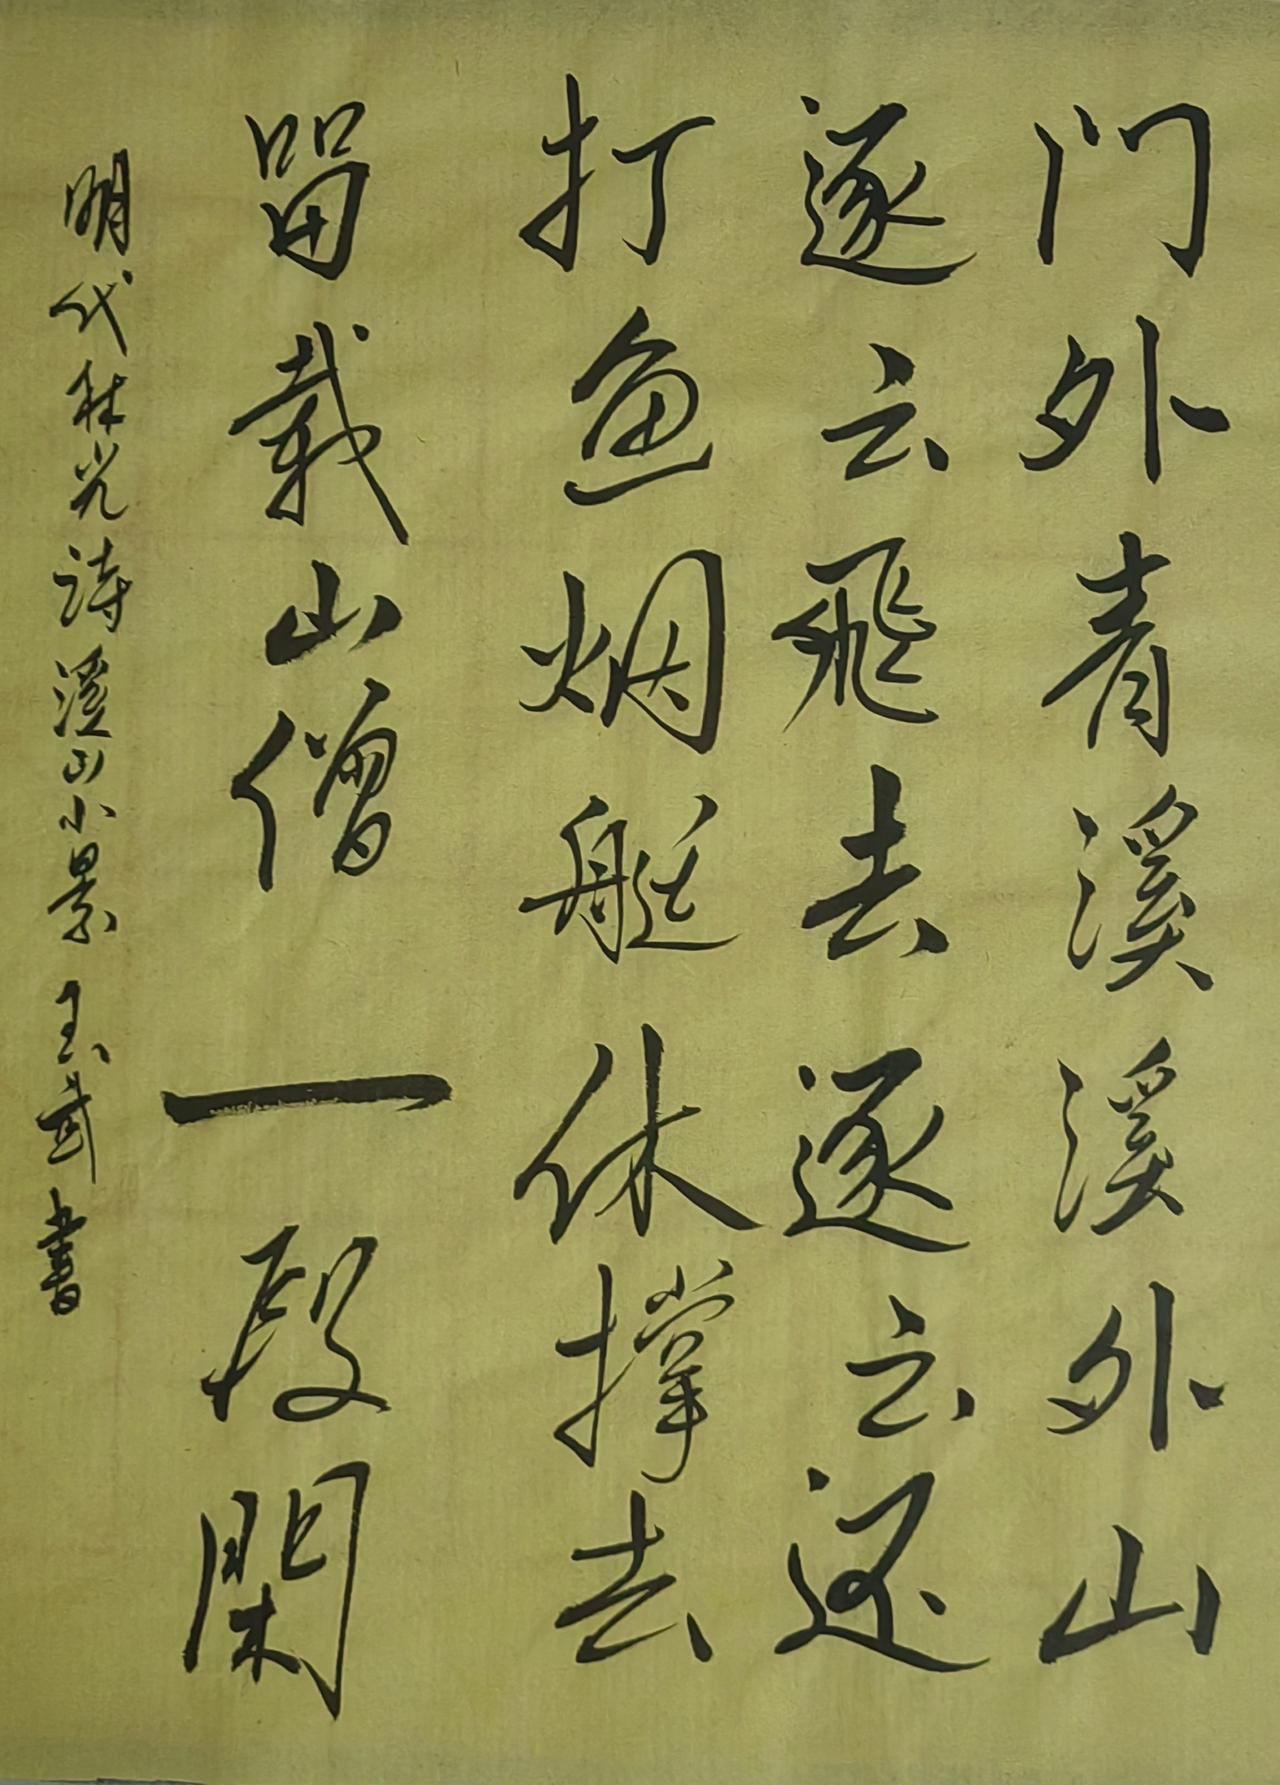 门外青溪溪外山
逐云飛去逐云还
打鱼烟艇休撑去
留载山僧一段閑
明代林光诗溪山小景玉武書